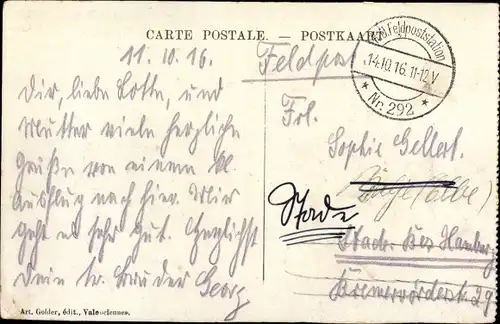 CARTE POSTALE. — POSTKARTE
11.10.16.
Feldpost
Feldpoststation
14.10.16. 11-12 V
* Nr. 292 *
Dir, liebe Lotte, und
Mutter viele herzliche
Grüße von einem kl.
Ausflug nach hier. Mir
geht es sehr gut. Herzlichst
Dein tr. Bruder Georg
Frl.
Sophie Gellert.
(Elbe)
Stade
Stade Bez Hamburg
Bremervörderst. 29
Art. Golder, édit., Valenciennes.